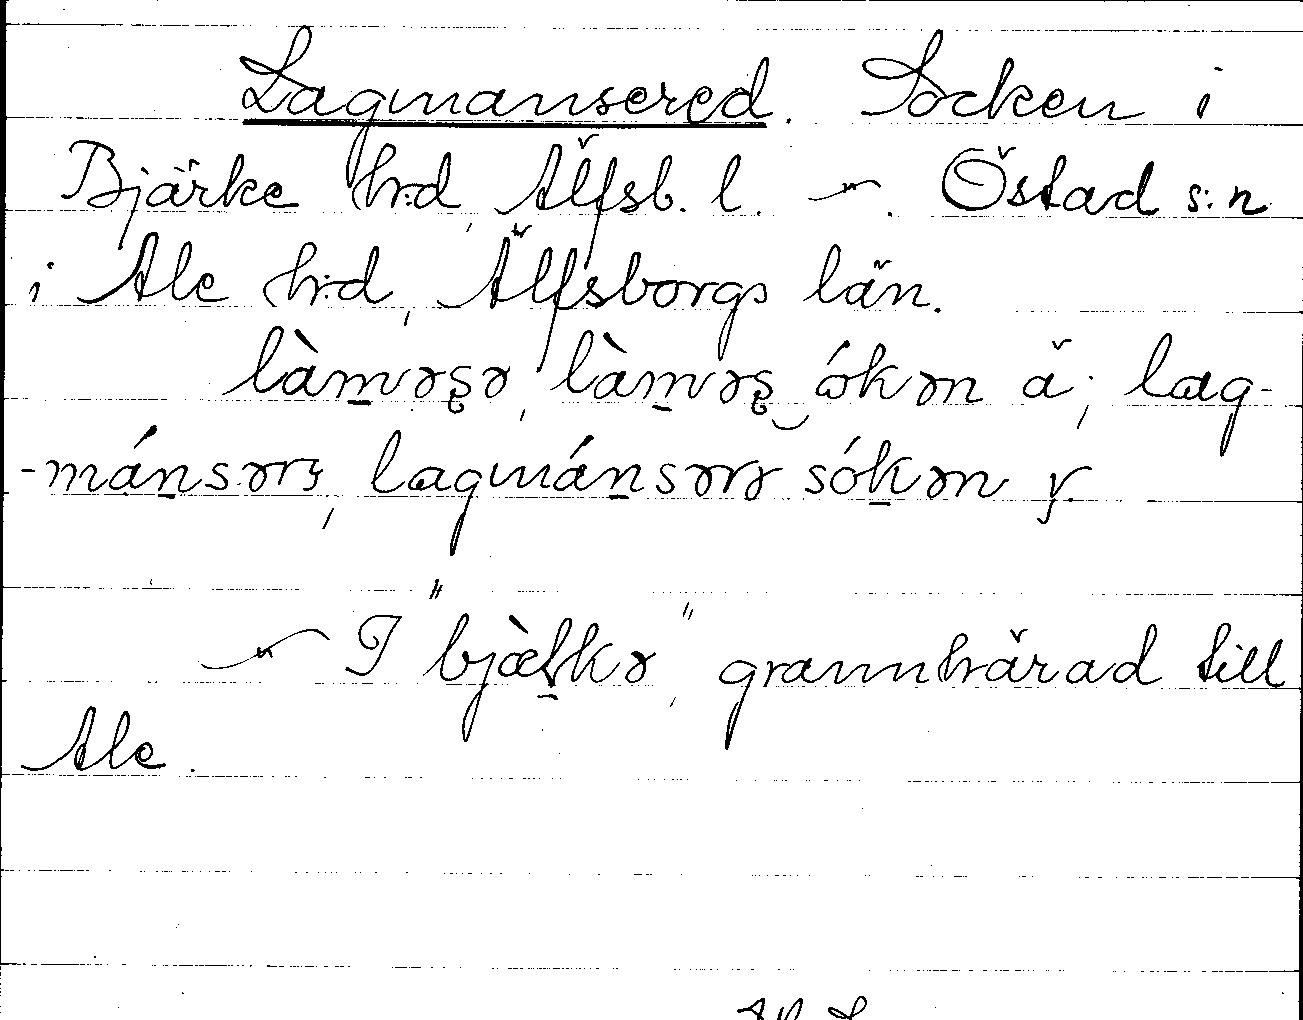 Lagmansered. Socken i
Bjärke hrd, Älfsb. l. –"–. Östad s:n
i Ale h:d, Älfsborgs län.
làm̱ɘs̨ɘ, làm̱ɘs̨‿ókɘn ä; lag-
-mán̠sɘrɘ, lagmán̠sɘrɘ sók̠ɘn y.
–"– I "bjæ̀ḻkɘ", grannhärad till
Ale.